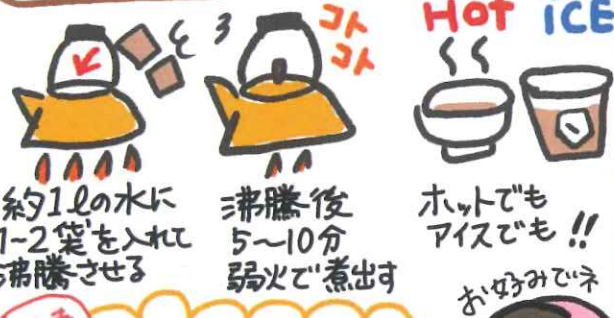 コト
コト
HOT ICE
約1ℓの水に
1~2袋を入れて
沸騰させる
沸騰後
5~10分
弱火で煮出す
ホットでも
アイスでも!!
お好みでネ